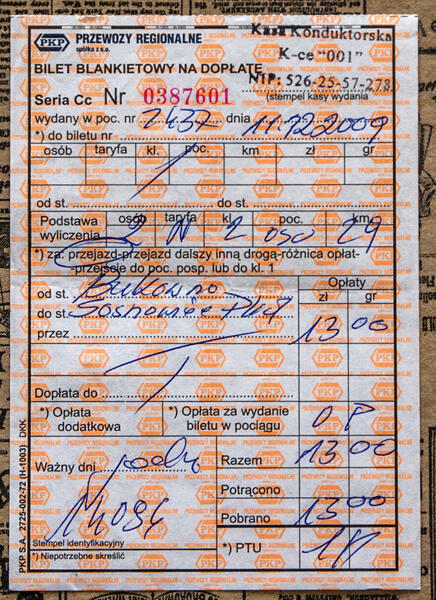 PKP PRZEWOZY REGIONALNE
spółka z o.o.
Kasa Konduktorska
K-ce "001"
NIP: 526-25-57-278
BILET BLANKIETOWY NA DOPŁATĘ
Seria Cc Nr 0387601
(stempel kasy wydania)
wydany w poc. nr 7437 dnia 11.12.2009
*) do biletu nr
osób taryfa kl. poc. km zł gr
od st. do st.
Podstawa wyliczenia osób taryfa kl. poc. km
2 N 2 oso 29
*) za: przejazd-przejazd dalszy inną drogą-różnica opłat-
-przejście do poc. posp. lub do kl. 1
od st. Bukowno Opłaty
do st. Sosnowiec Płd zł gr
przez 13 00
Dopłata do
*) Opłata dodatkowa *) Opłata za wydanie biletu w pociągu
Ważny dni Razem 13 00
Potrącono
Pobrano 13 00
Stempel identyfikacyjny
*) Niepotrzebne skreślić *) PTU
PKP S.A. 2725-002-72 (H-1003) DKK